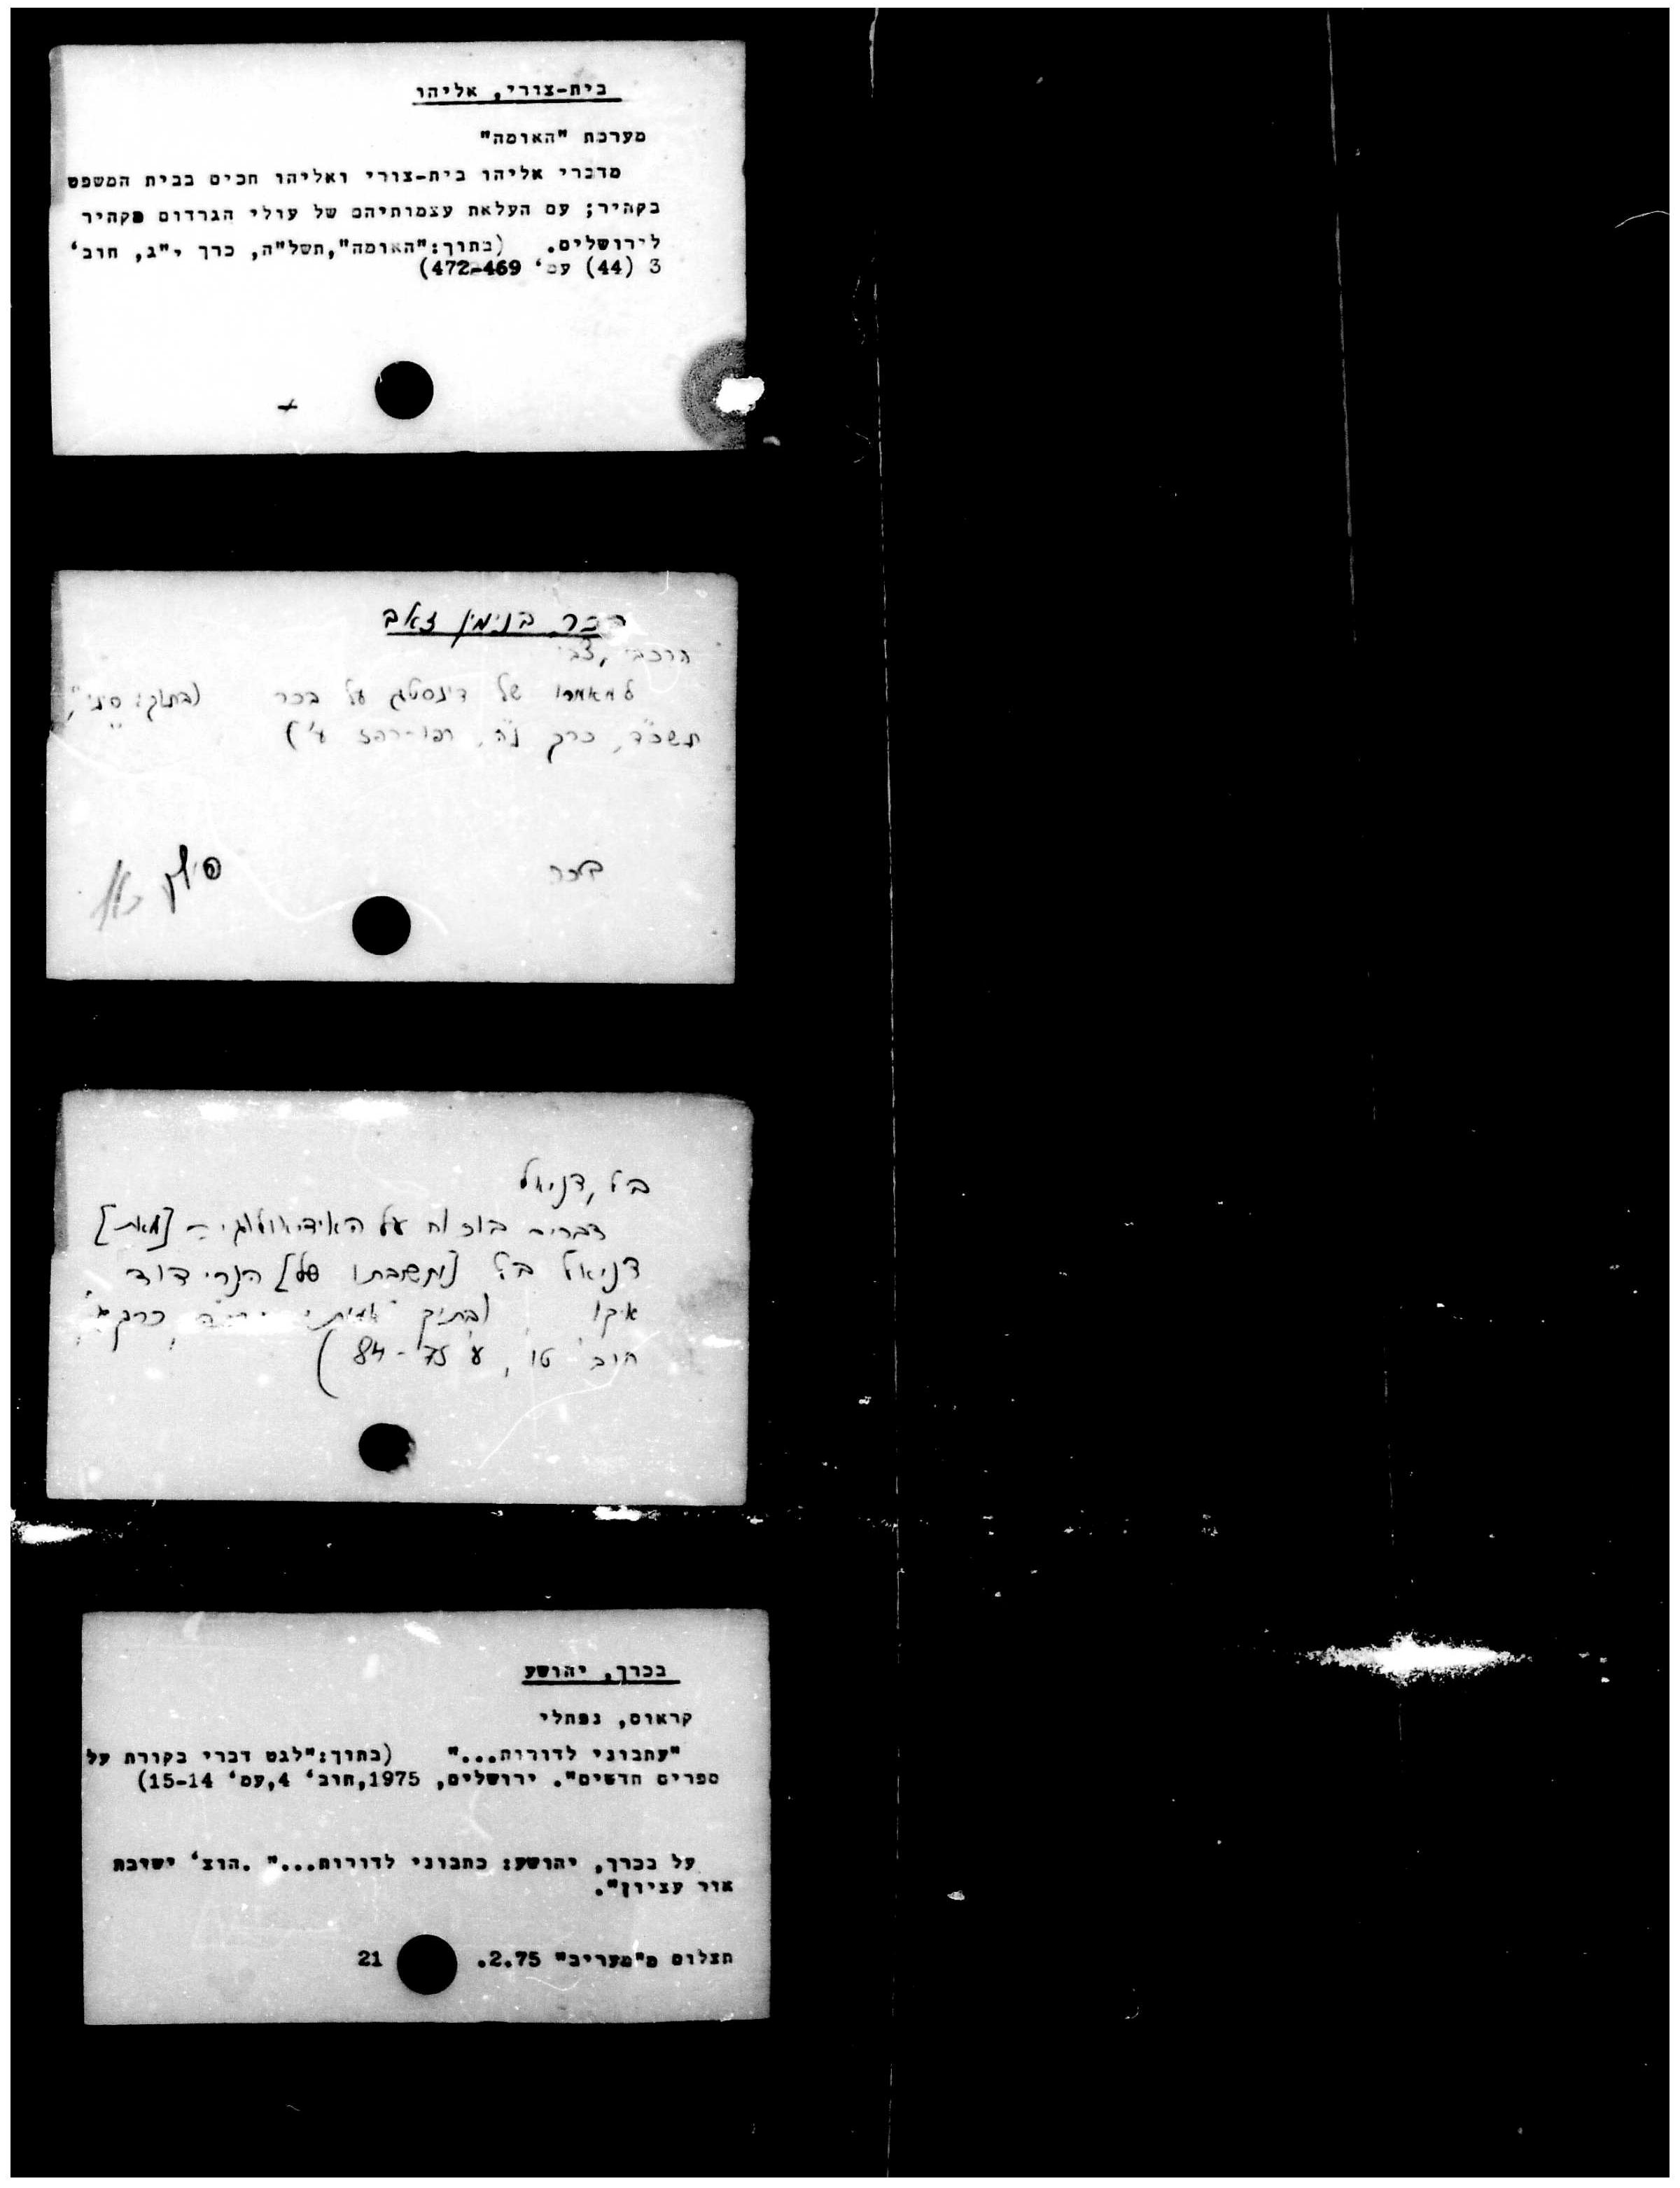 בית-צורי, אליהו
מערכת "האומה"
מדברי אליהו בית-צורי ואליהו חכים בבית המשפט
בקהיר; עם העלאת עצמותיהם של עולי הגרדום מקהיר
לירושלים. (בתוך:"האומה",תשל"ה, כרך י"ג, חוב'
3 (44) עמ' 469-472)
בכר בנימין זאב
הרכבי, צבי
למאמרו של דינסטג על בכר (בתוך: סיני",
תשכ"ד, כרך נ"ה, רפו-רפז ע')
בכר
סיון
בל, דניאל
דברים בוכוח על האידיאולוגיה [מאת]
דניאל בל [ותשובתו של] הנרי דוד
איקן (בתוך כרך
חוב' טו, ע' 75-84)
בכרך, יהושע
קראוס, נפתלי
"עתבוני לדורות..." (בתוך:"לגט דברי בקורת על
ספרים חדשים". ירושלים, 1975,חוב' 4,עמ' 14-15)
על בכרך, יהושע: כתבוני לדורות...". הוצ' ישיבת
אור עציון".
תצלום מ"מעריב" 2.75. 21